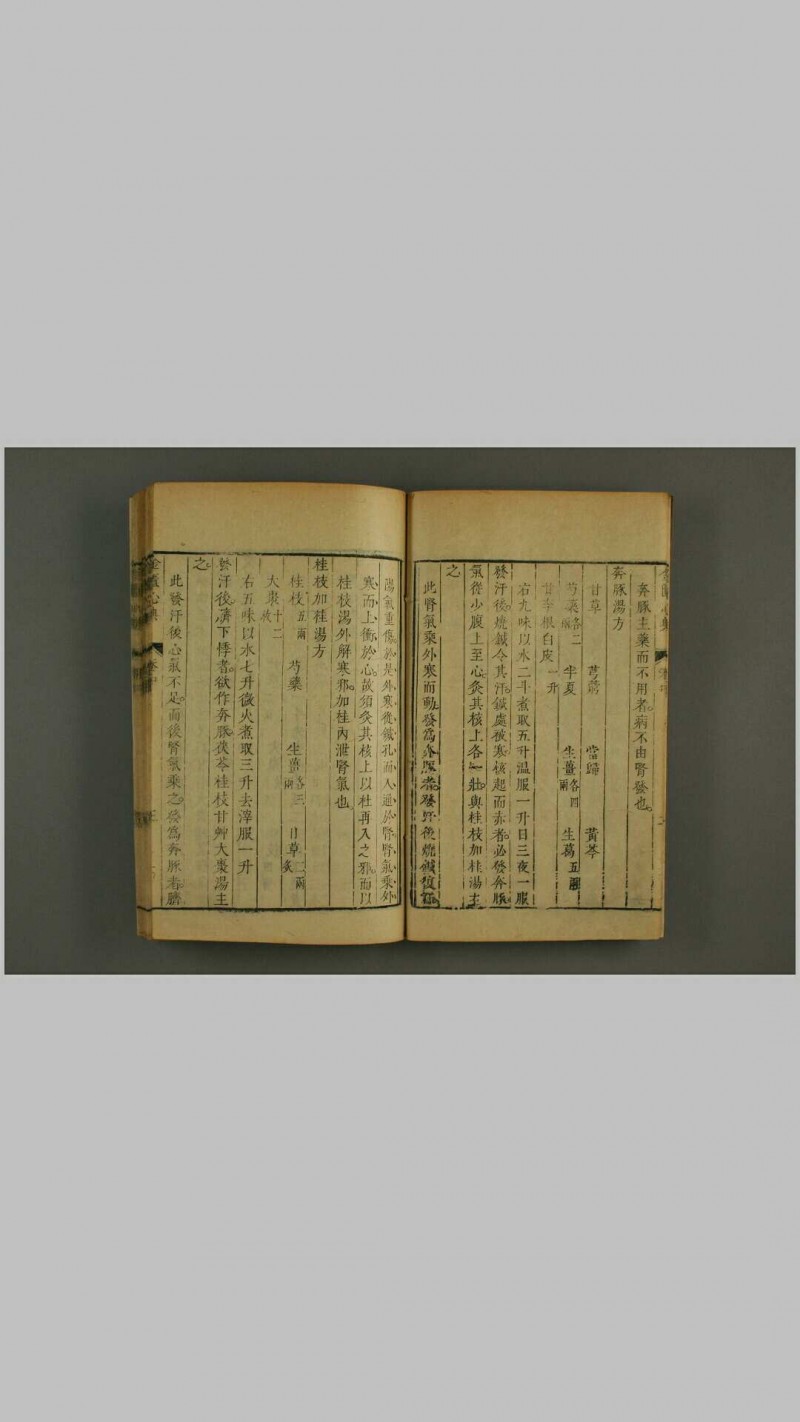 奔豚主藥而不用者。病不由腎發也。
奔豚湯方
甘草 芎藭 當歸 黃芩
芍藥各二兩 半夏 生薑各四兩 生葛五兩
甘李根白皮一升
右九味以水二斗煮取五升溫服一升日三夜一服
發汗後。燒鍼令其汗。鍼處被寒。核起而赤者。必發奔豚。
氣從少腹上至心。灸其核上各一壯。與桂枝加桂湯主
之
此腎氣乘外寒而動。發爲奔豚者。發汗後燒鍼復汗。
陽氣重傷。於是外寒從鍼孔而入通於腎。腎氣乘外
寒而上衝於心。故須灸其核上以杜再入之邪。而以
桂枝湯外解寒邪。加桂內泄腎氣也
桂枝加桂湯方
桂枝五兩 芍藥 生薑各三兩 甘草二兩炙
大棗十二枚
右五味以水七升微火煮取三升去滓服一升
發汗後。臍下悸者。欲作奔豚。茯苓桂枝甘艸大棗湯主
之。
此發汗後心氣不足。而後腎氣乘之。發爲奔豚者。臍
金匱心典 卷中